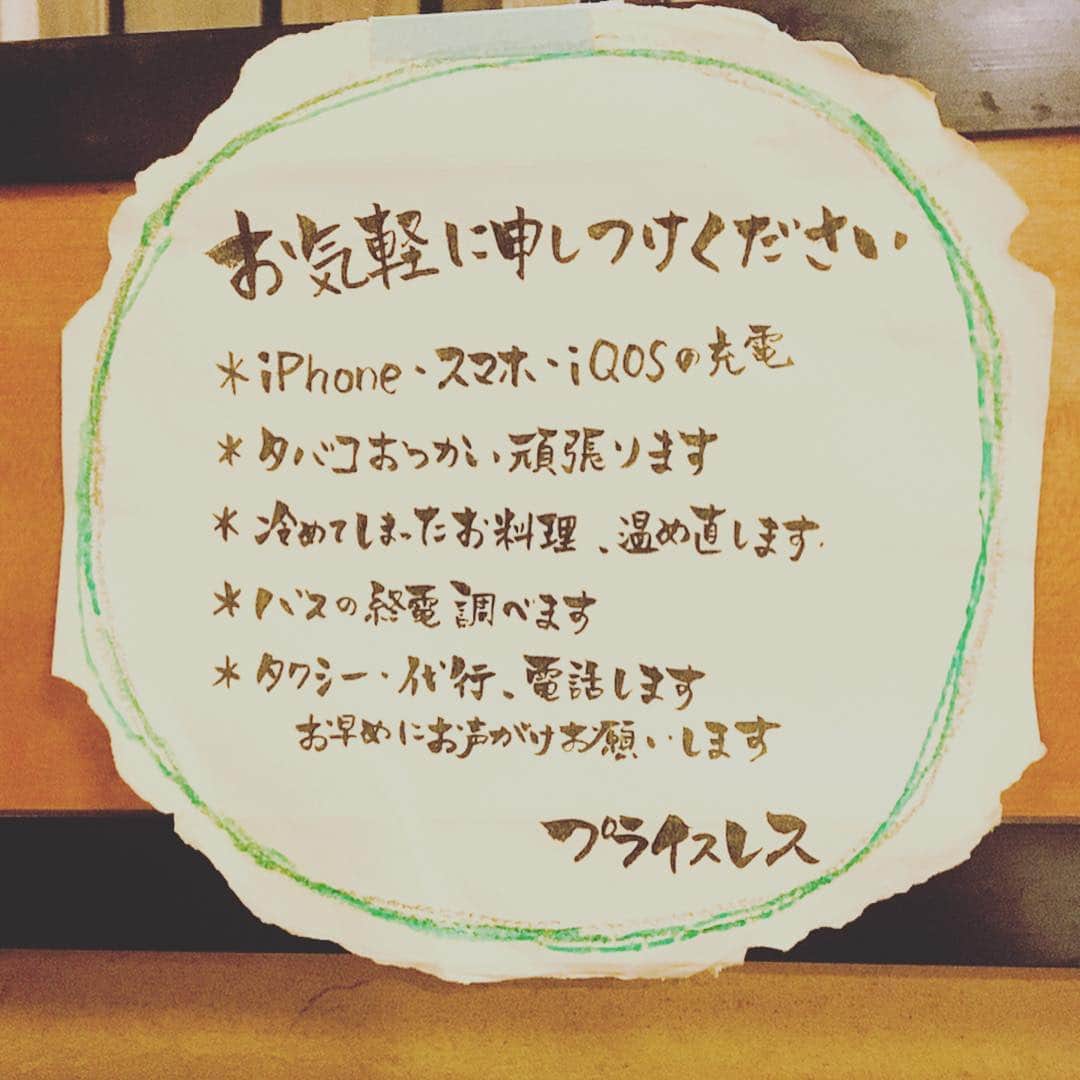 お気軽に申しつけください
*iPhone・スマホ・iQOSの充電
*タバコおつかい頑張ります
*冷めてしまったお料理、温め直します.
*バスの終電調べます
*タクシー・代行、電話します
お早めにお声がけお願いします
プライスレス